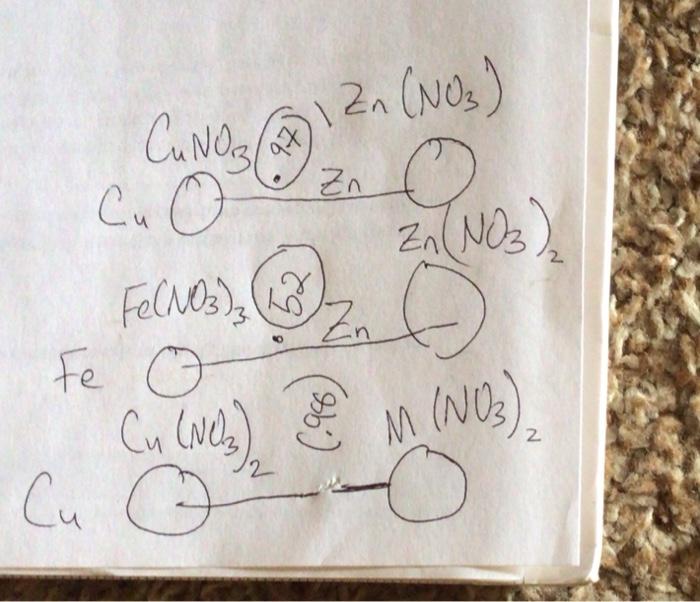 CuNO₃ .97 \ Zn (NO₃)
Cu Zn
Zn(NO₃)₂
Fe(NO₃)₃ .52 Zn
Fe
Cu (NO₃)₂ (.98) M (NO₃)₂
Cu